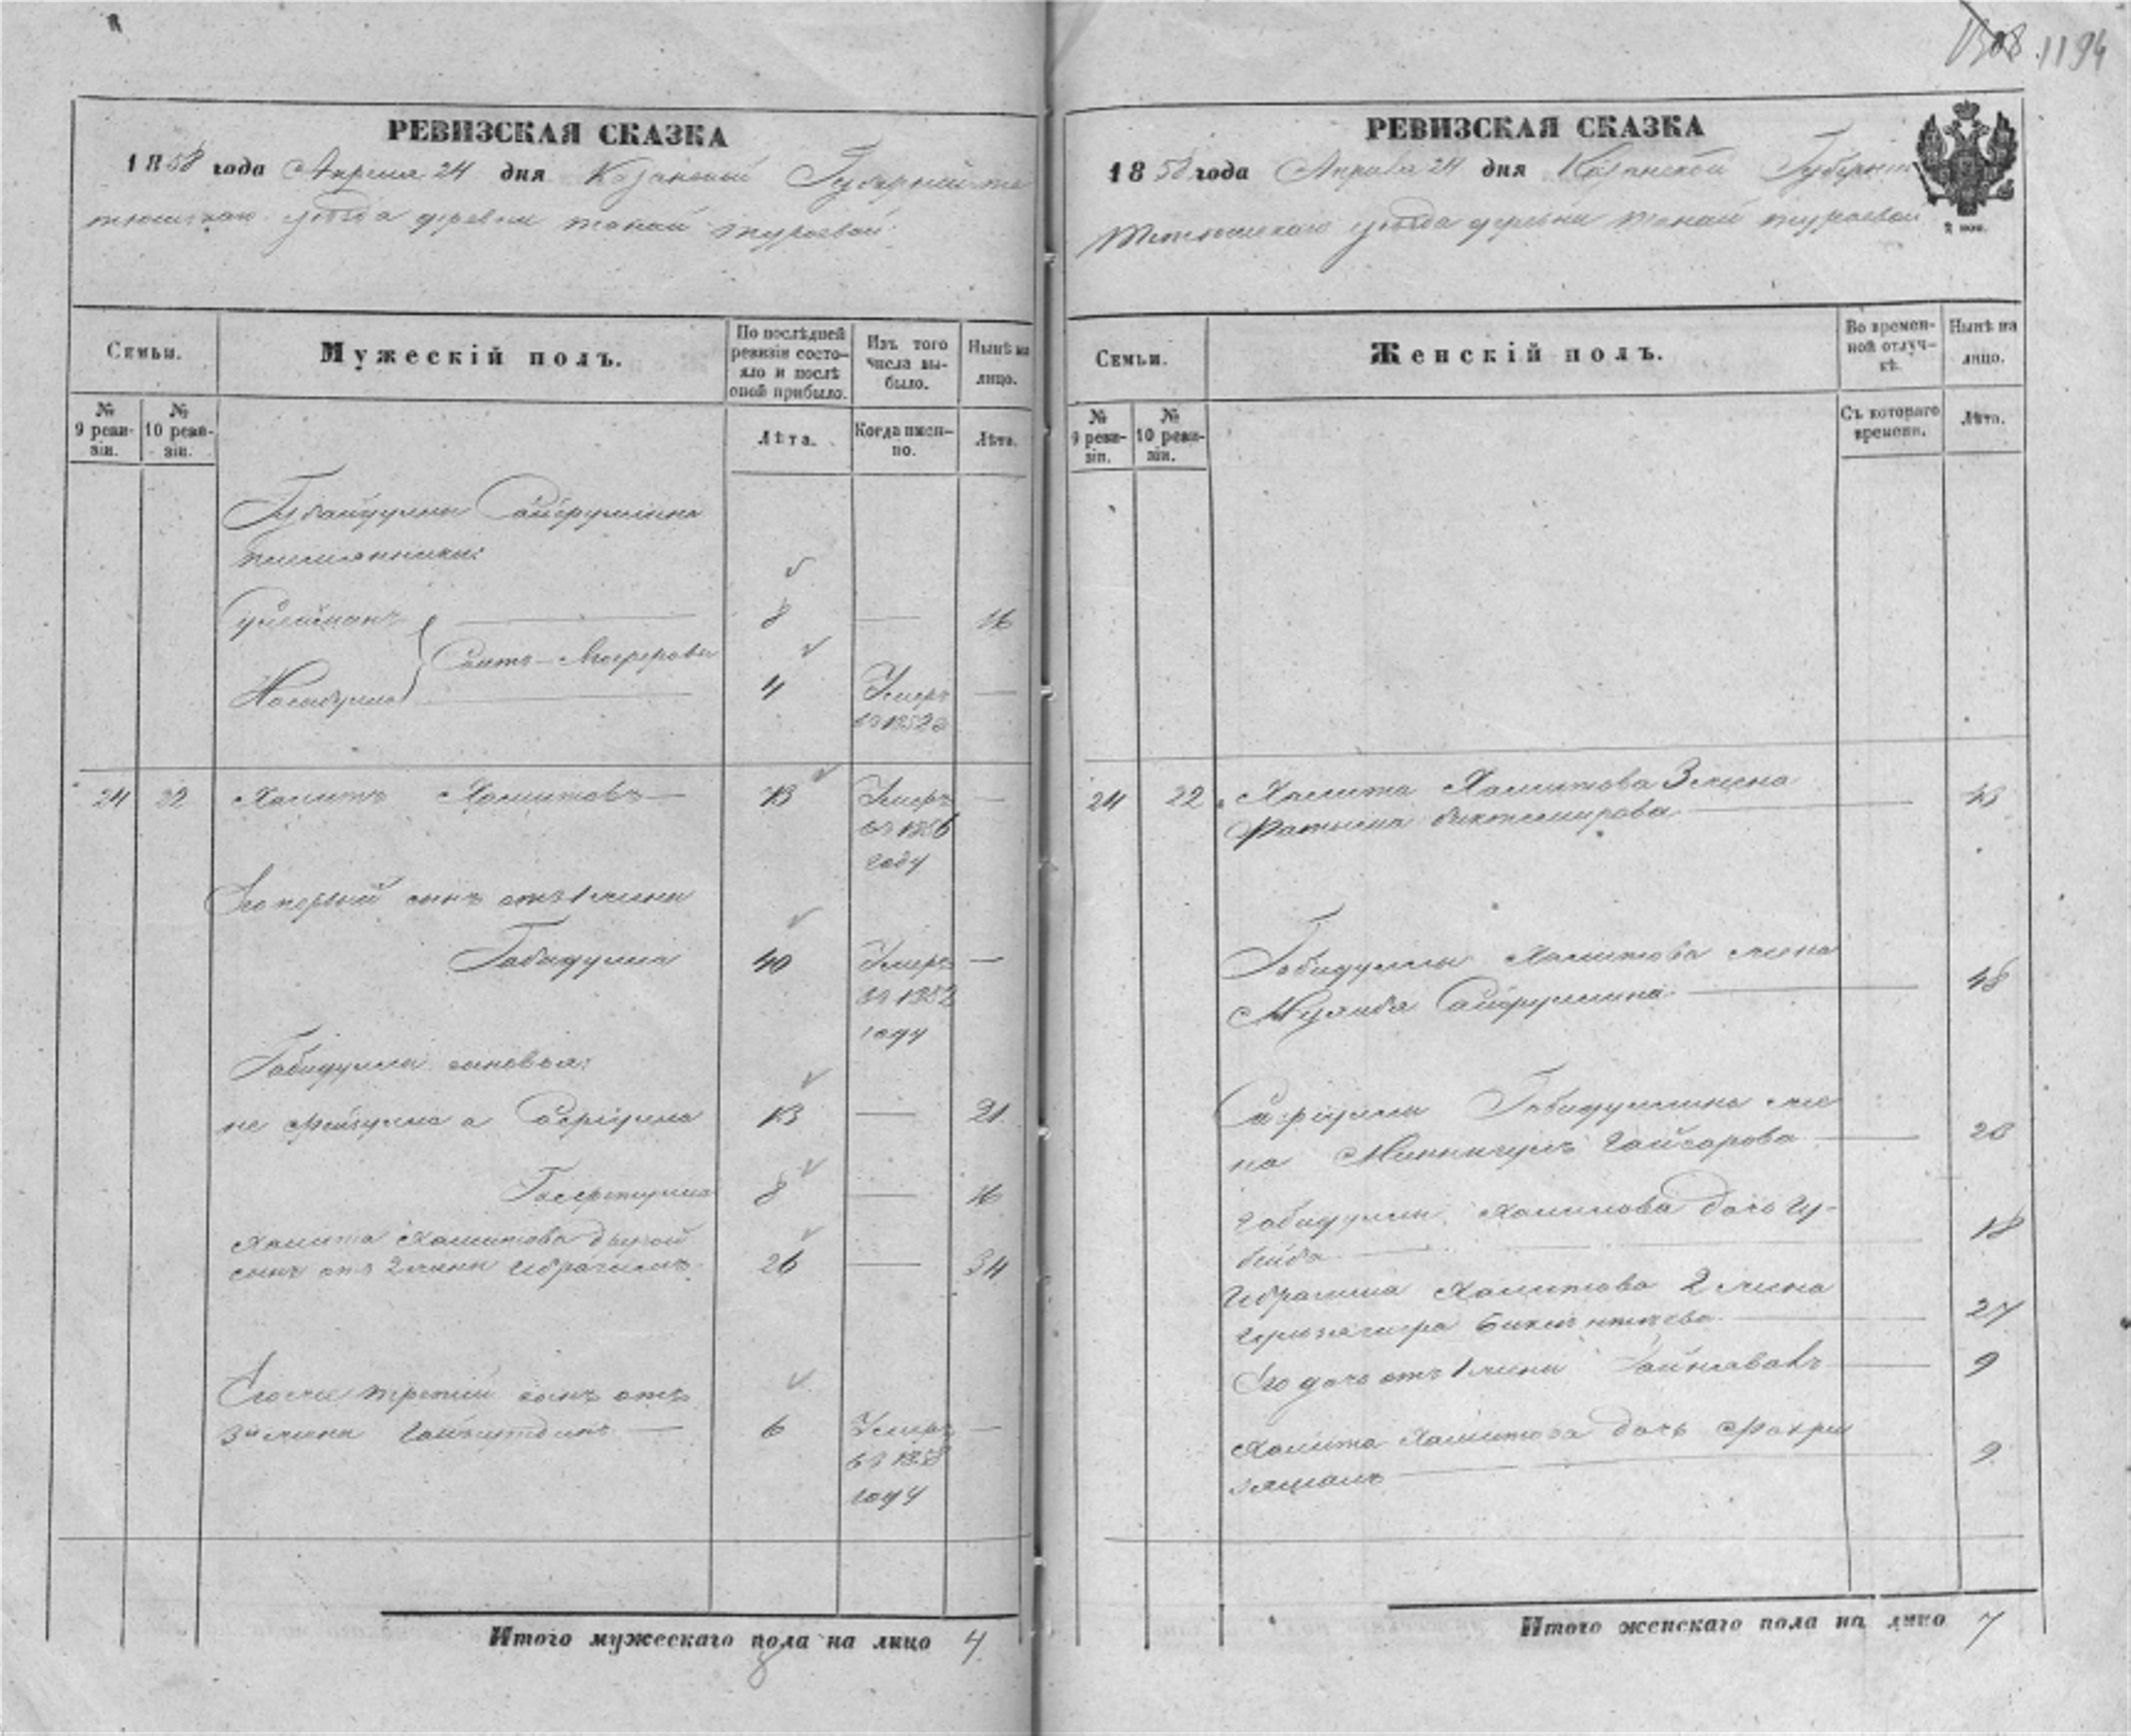 1194
РЕВИЗСКАЯ СКАЗКА
1858 года Апреля 24 дня Казанской Губерніи те
тюшскаго уѣзда деревни Танай Тураевой
Семьи.
Мужескій полъ.
По послѣдней ревизіи состояло и послѣ оной прибыло.
Изъ того числа выбыло.
Нынѣ на лицо.
№ 9 ревизіи.
№ 10 ревизіи.
Лѣта.
Когда именно.
Лѣта.
Губайдуллы Сайфуллина
племянники:
8 — 16
Саитъ
4 Умеръ —
въ 1852 г
24 22 Хамитъ Хамитовъ — 73 Умеръ —
въ 1856
году
Его первый сынъ отъ 1 жены
Габидулла 40 Умеръ —
въ 1852
году
Габидуллы сыновья:
не Фейзулла а Сафіулла 13 — 21
8 — 16
Хамита Хамитова другой
сынъ отъ 2 жены Ибрагимъ 26 — 34
Его же третій сынъ отъ
3й жены — 6 Умеръ —
въ 1858
году
Итого мужескаго пола на лицо 4
РЕВИЗСКАЯ СКАЗКА
1858 года Апреля 24 дня Казанской Губерніи
Тетюшскаго уѣзда деревни Танай Тураевой
Семьи.
Женскій полъ.
Во временной отлучкѣ.
Нынѣ на лицо.
№ 9 ревизіи.
№ 10 ревизіи.
Съ котораго времени.
Лѣта.
24 22 Хамита Хамитова 3 жена
Биктемирова — 43
Габидуллы Хамитова жена
Сайфуллина — 48
Сафіуллы Габидуллина же
на — 20
Габидуллы Хамитова дочь Гу-
бейда — 18
Ибрагима Хамитова 2 жена
— 27
Его дочь отъ 1 жены — 9
Хамита Хамитова дочь Фахри
— 9
Итого женскаго пола на лицо 7